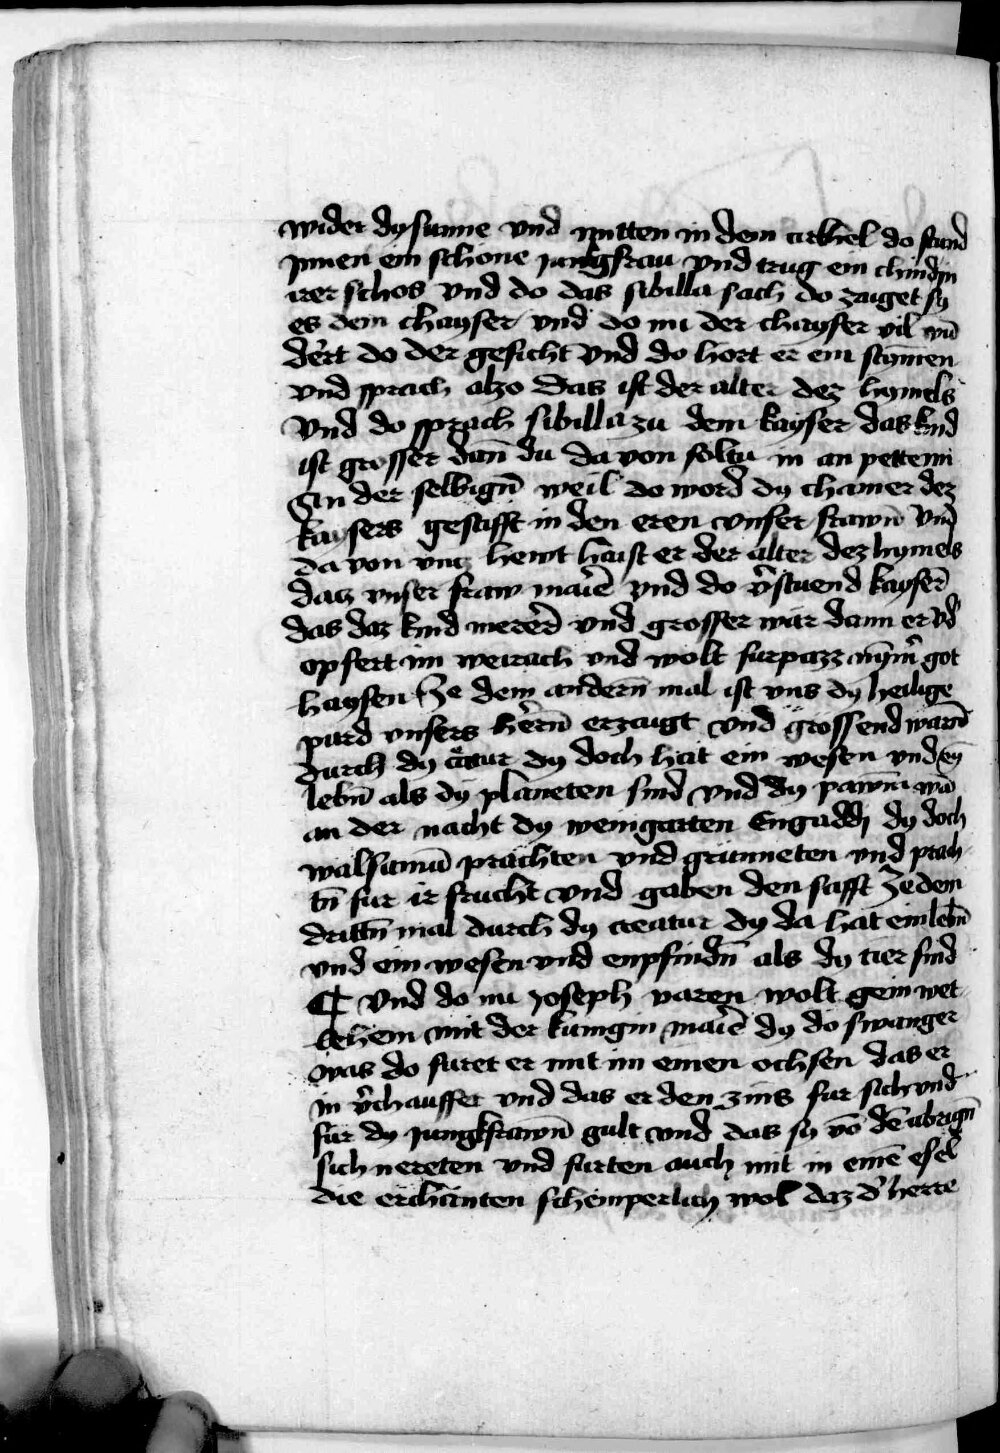 wider dy sunne vnd mitten in dem cirkhel do stund
jnnen ein schone jungkfrau vnd trug ein chind jn
irer schos vnd do das sibilla sach do zaiget sy
es dem chayser vnd do nu der chayser vil wū
dert do der gesicht vnd do hort er ein stymen
vnd sprach also das ist der alter dez hymels
Vnd do sprach sibilla zu dem kayser das kind
ist grosser dan̄ du da von soltu in an petten
An der selbign̄ weil do word dy chamer dez
kaysers gestifft in den eren vnser frawn̄ vnd
da von vncz hewt haist er der alter dez hymels
daz vnser fraw mar̄ie vnd do v̄stuend kayser̄
das daz kind merer̄ vnd grosser wär dann er vd
opfert im weirach vnd wolt furpazz nym̄ got
haysen Ze dem andern̄ mal ist vns dy heilige
purd vnsers hern̄ erzaugt vnd grossend warn̄
durch dy c̄atur dy doch hat ein wesen vnd eȳ
lebn̄ als dy planeten sind vnd dy pawm wā
an der nacht dy weingarten Engaddi dy doch
walsamū prachten vnd grünneten vnd prah
tn̄ fur ir frucht vnd gaben den safft Ze dem
drittn̄ mal durch dy creatur dy da hat ein lebn̄
vnd ein wesen vnd enpfindn̄ als dy tier sind
¶ Vnd do nu Joseph varen wolt gein wet
lehem mit der kunigin mar̄ie dy do swanger
was do furet er mit im einen ochsen das er
in v̄chauffet vnd das er den zins fur sich vnd
für dy jungkfrawn̄ gult vnd das sy vō dē ubrign̄
sich nereten vnd furten auch mit in einē esel
die erchanten scheinperlich wol daz d' herre